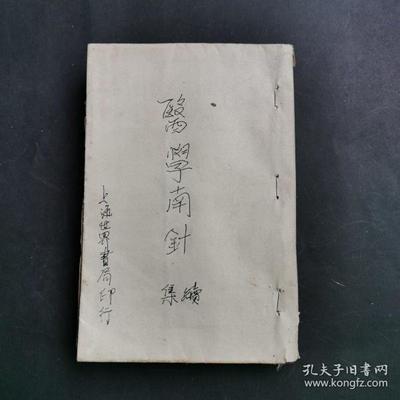 醫學南針
續集
上海世界書局印行
孔夫子旧书网
www.kongfz.com